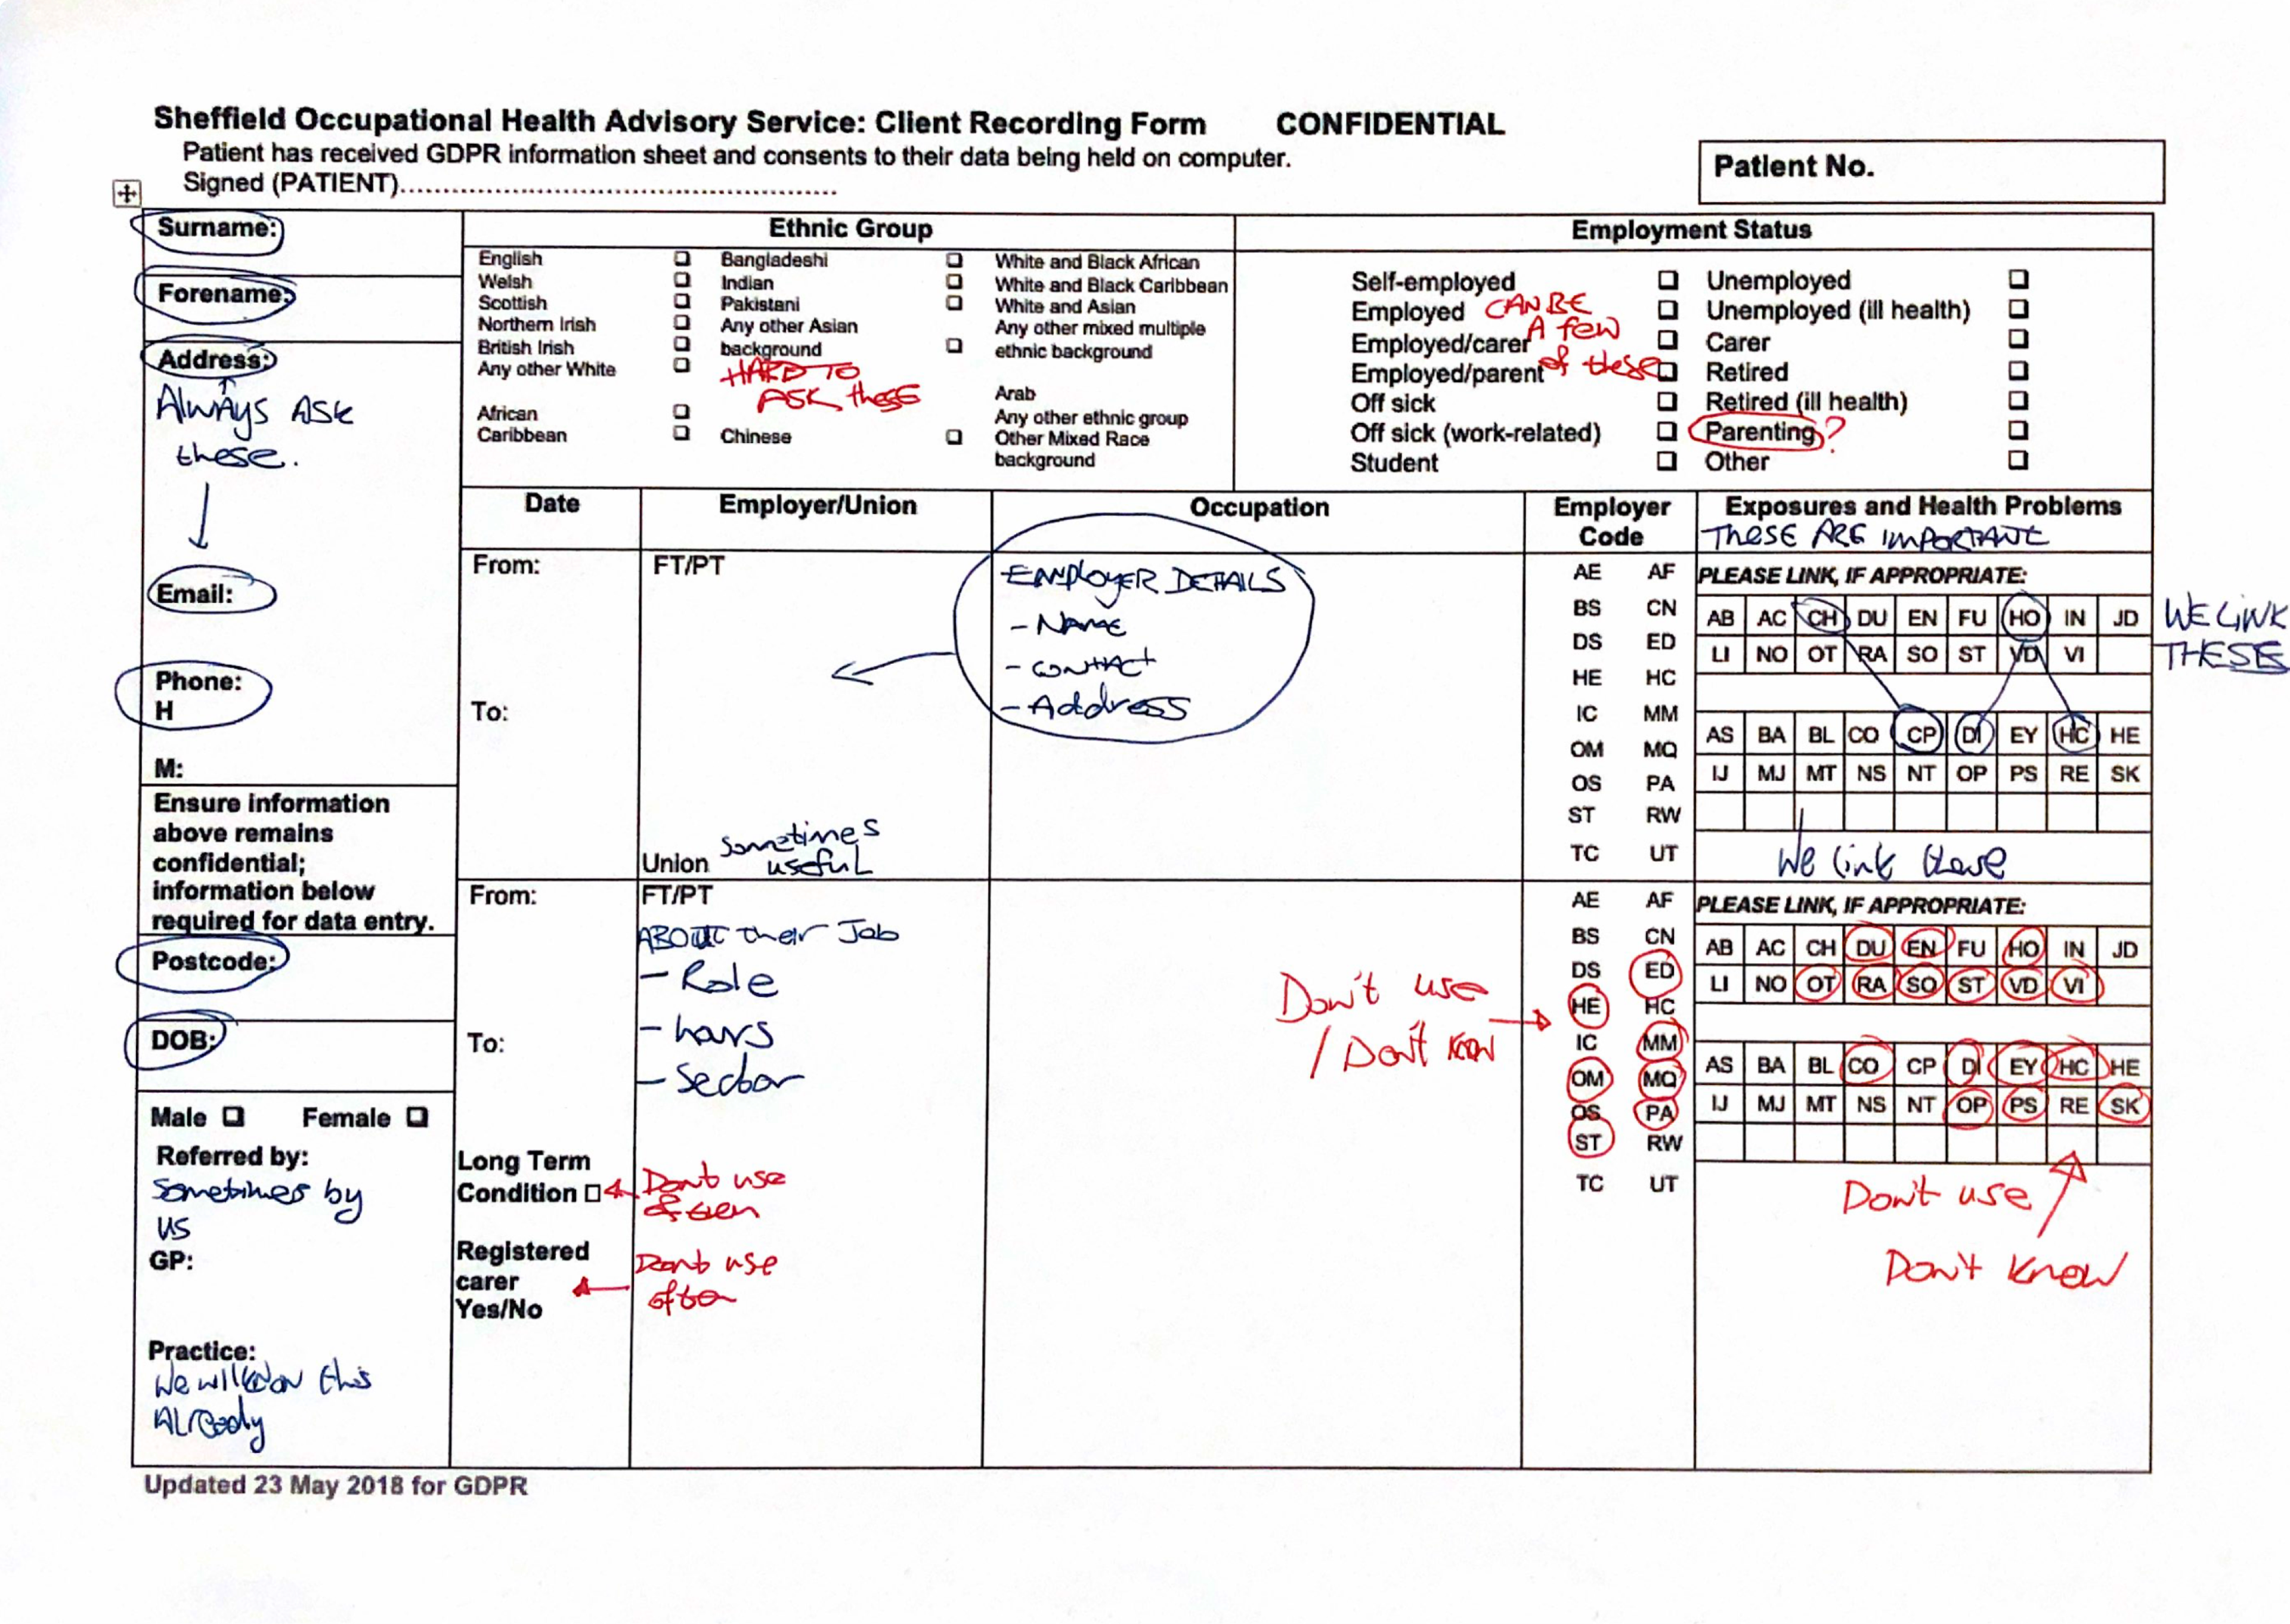 Sheffield Occupational Health Advisory Service: Client Recording Form CONFIDENTIAL
Patient has received GDPR information sheet and consents to their data being held on computer.
Signed (PATIENT)....................................................
Patient No.
Surname:
Forename:
Address:
Always ASK
these.
Email:
Phone:
H
M:
Ensure information
above remains
confidential;
information below
required for data entry.
Postcode:
DOB:
Male ☐ Female ☐
Referred by:
Sometimes by
us
GP:
Practice:
We will know this
Already
Ethnic Group
English ☐ Bangladeshi ☐ White and Black African
Welsh ☐ Indian ☐ White and Black Caribbean
Scottish ☐ Pakistani ☐ White and Asian
Northern Irish ☐ Any other Asian Any other mixed multiple
British Irish ☐ background ☐ ethnic background
Any other White ☐
HARD TO
ASK these
Arab
African ☐ Any other ethnic group
Caribbean ☐ Chinese ☐ Other Mixed Race
background
Employment Status
Self-employed ☐ Unemployed ☐
Employed ☐ Unemployed (ill health) ☐
Employed/carer ☐ Carer ☐
Employed/parent ☐ Retired ☐
Off sick ☐ Retired (ill health) ☐
Off sick (work-related) ☐ Parenting ? ☐
Student ☐ Other ☐
CAN BE
A few
of these
Date Employer/Union Occupation Employer Code Exposures and Health Problems
These ARE IMPORTANT
From: FT/PT
EMPLOYER DETAILS
- Name
- contact
- Address
To:
Union sometimes
useful
AE AF
BS CN
DS ED
HE HC
IC MM
OM MQ
OS PA
ST RW
TC UT
PLEASE LINK, IF APPROPRIATE:
AB AC CH DU EN FU HO IN JD
LI NO OT RA SO ST VD VI
WE LINK
THESE
AS BA BL CO CP DI EY HC HE
IJ MJ MT NS NT OP PS RE SK
We link these
From: FT/PT
ABOUT their Job
- Role
- hours
- Sector
To:
Long Term
Condition ☐
Dont use
often
Registered
carer
Yes/No
Dont use
often
Don't use
/ Don't know
AE AF
BS CN
DS ED
HE HC
IC MM
OM MQ
OS PA
ST RW
TC UT
PLEASE LINK, IF APPROPRIATE:
AB AC CH DU EN FU HO IN JD
LI NO OT RA SO ST VD VI
AS BA BL CO CP DI EY HC HE
IJ MJ MT NS NT OP PS RE SK
Don't use
Don't know
Updated 23 May 2018 for GDPR